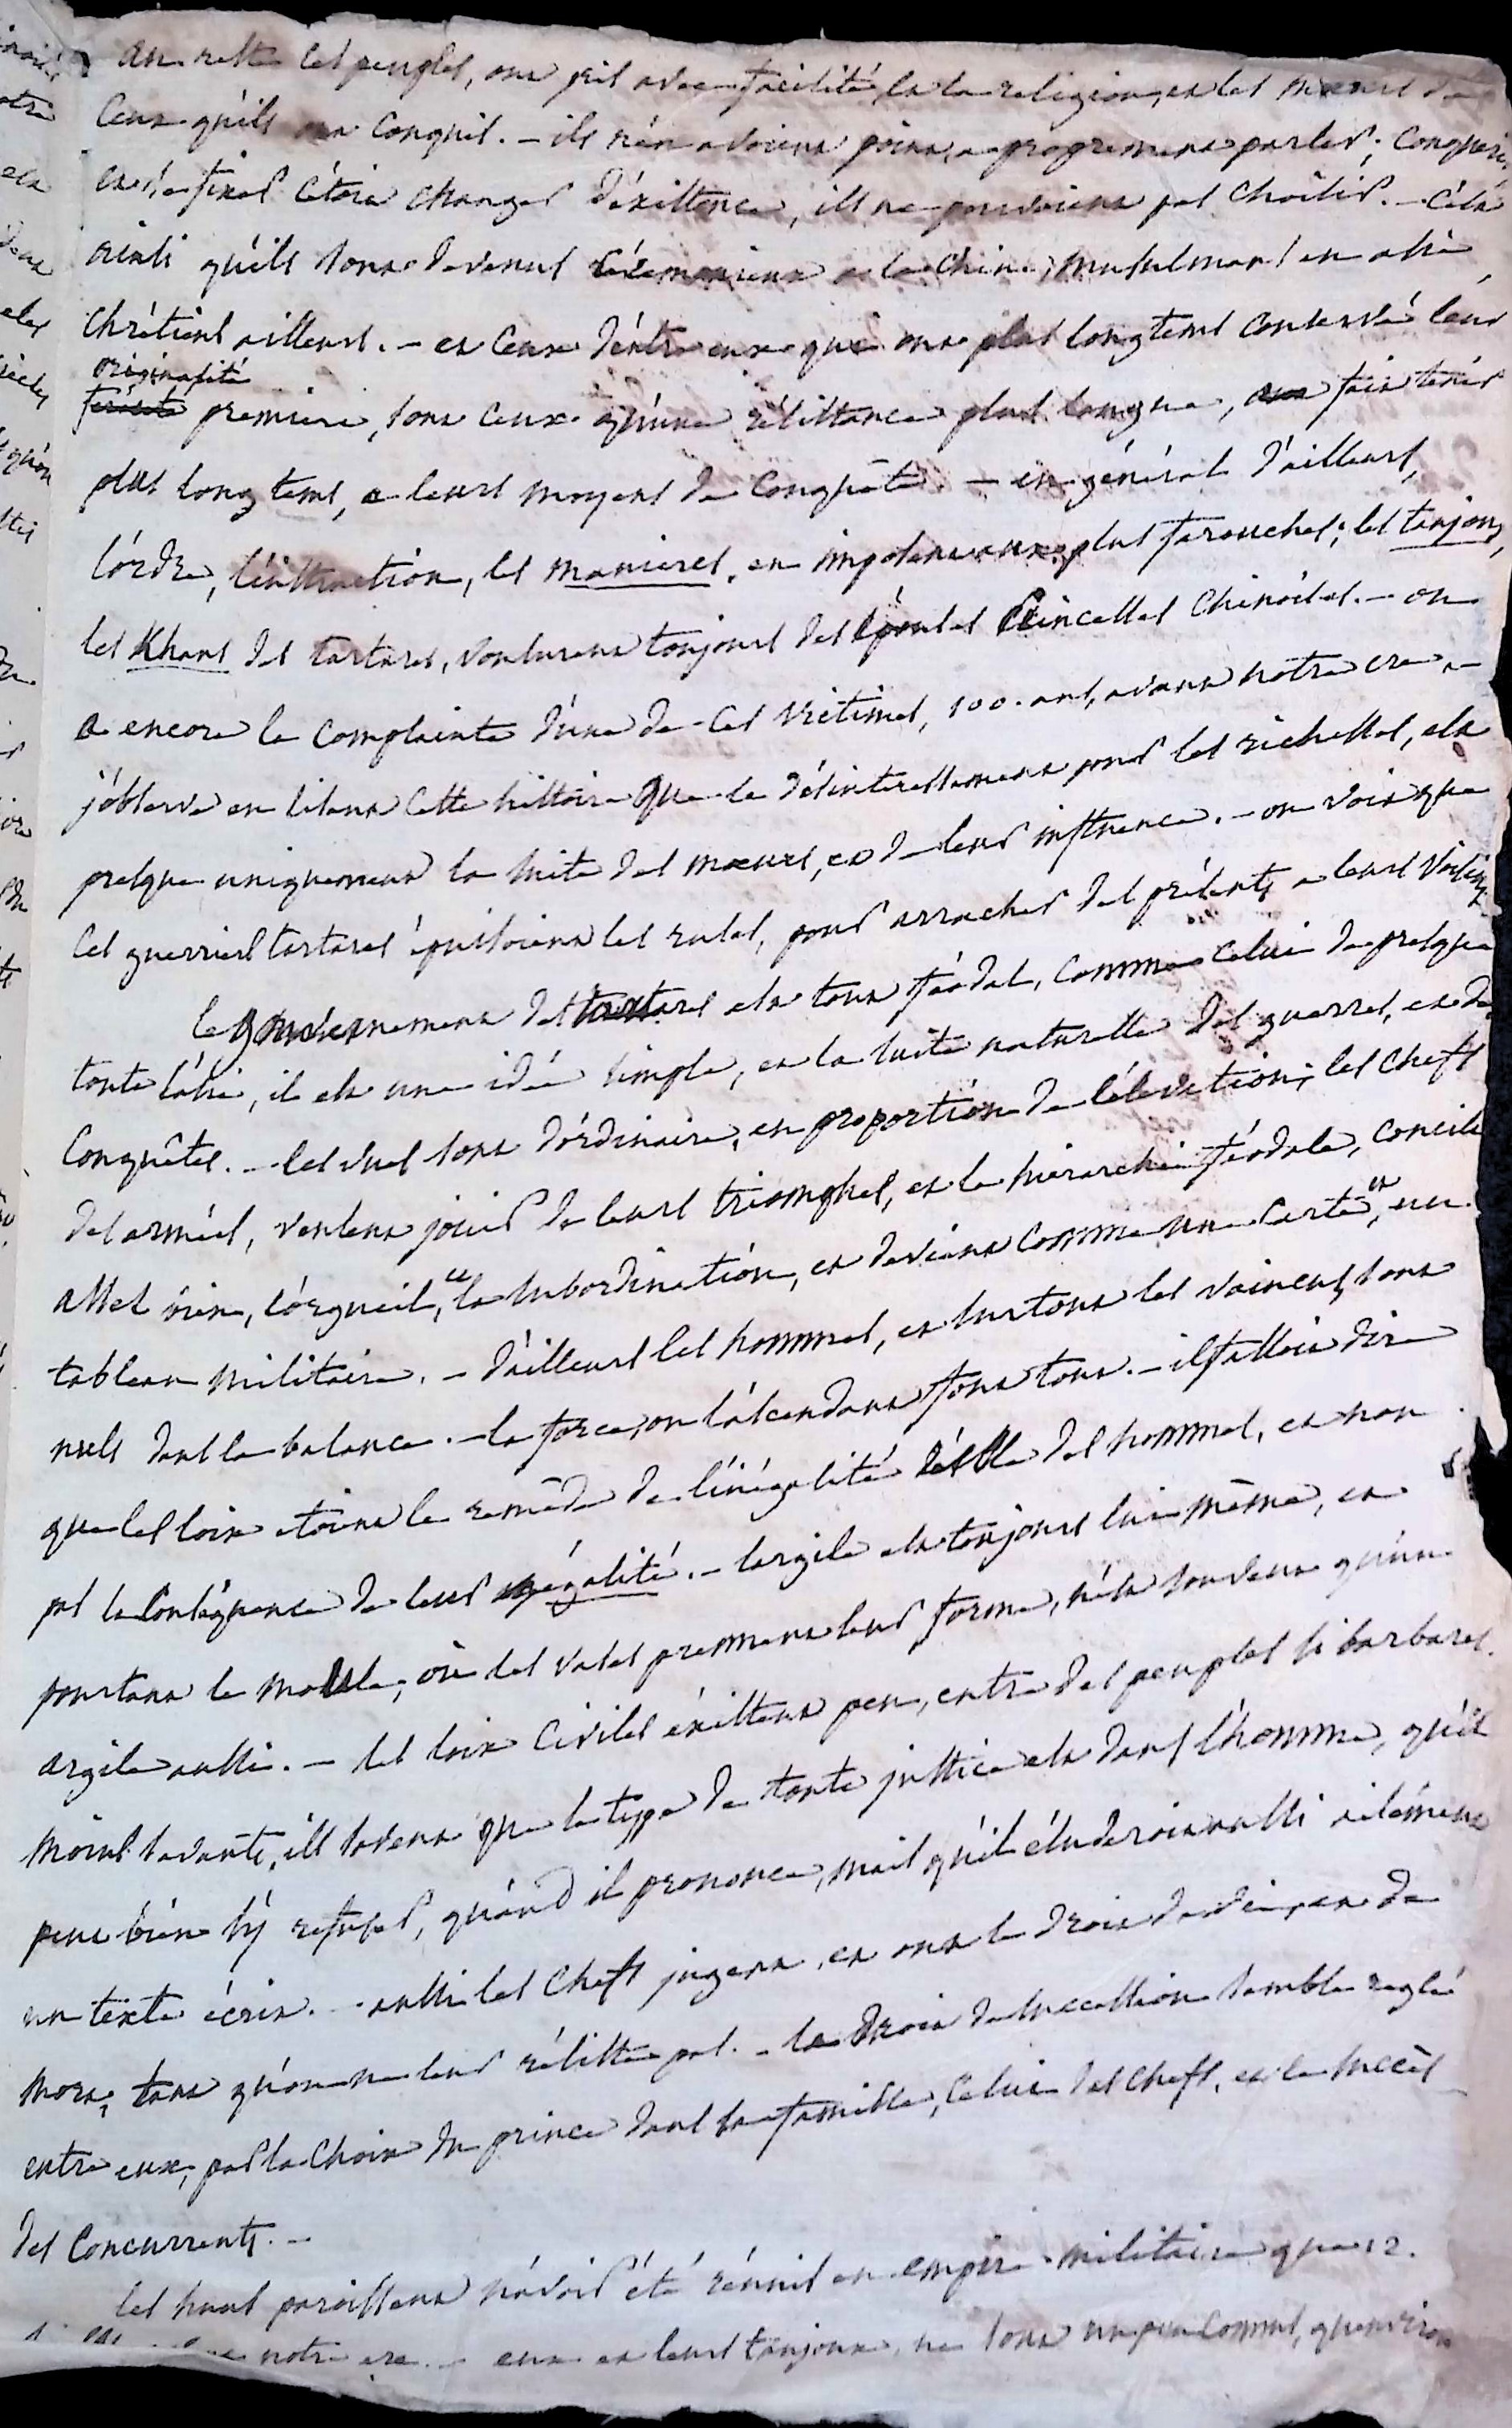 au reste ces peuples, ont pris avec facilité, et la religion, et les mœurs de
ceux qu'ils ont conquis. - ils n'en avoient point, a proprement parler; conquérir,
et se fixer c'étoit changer d'éxistence, ils ne pouvoient pas choisir. - c'est
ainsi qu'ils sont devenus cérémonieux a la chine, musulmans en asie,
chrétiens ailleurs. - et ceux d'entre eux qui ont plus longtems conservé leur
originalité
férocité premiere, sont ceux qu'une résistance plus longue, a fait tenir
plus long tems, a leurs moyens de conquête. - en général d'ailleurs,
l'ordre, l'instruction, les manieres, en imposent aux plus farouches; les tanjous,
les Khans des tartares, voulurent toujours des épouses Princesses chinoises. - on
a encore la complainte d'une de ces victimes, 100. ans, avant notre ere. -
j'observe en lisant cette histoire que le désinteressement pour les richesses, est
presque uniquement la suite des mœurs, et de leur influence. - on voit que
ces guerriers tartares épuisoient les ruses, pour arracher des présents a leurs voisins.
le gouvernement des tartares est tout féodal, comme celui de presque
toute l'asie, il est une idée simple, et la suite naturelle des guerres, et des
conquêtes. - les vues sont d'ordinaire, en proportion de l'élevation; les chefs
des armées, veulent jouir de leurs triomphes, et la hierarchie féodale, concilie
assez bien, l'orgueil, et la subordination, et devient comme une carte, et un
tableau militaire. - d'ailleurs les hommes, et surtout les vaincus, sont
nuls dans la balance. - la force, ou l'ascendant font tout. - il falloit dire
que les loix etoient le remède de l'inégalité réelle des hommes, et non
pas la conséquence de leur égalité. - l'argile est toujours lui même, et
pourtant le moule, où les vases prennent leur forme, n'est souvent qu'une
argile aussi. - les loix civiles éxistent peu, entre des peuples si barbares.
moins savants, ils savent que le type de toute justice est dans l'homme, qu'il
peut bien s'y refuser, quand il prononce, mais qu'il éluderoit aussi aisément
un texte écrit. - aussi les chefs jugent, et ont le droit de vie, et de
mort, tant qu'on ne leur résiste pas. - le droit de succession semble reglé
entre eux, par le choix du prince dans sa famille, celui des chefs, et le succès
des concurrents. -
les huns paroissent n'avoir été réunis en empire militaire que 12.
notre ere. - eux et leurs tanjous, ne sont un peu connus, qu'environ